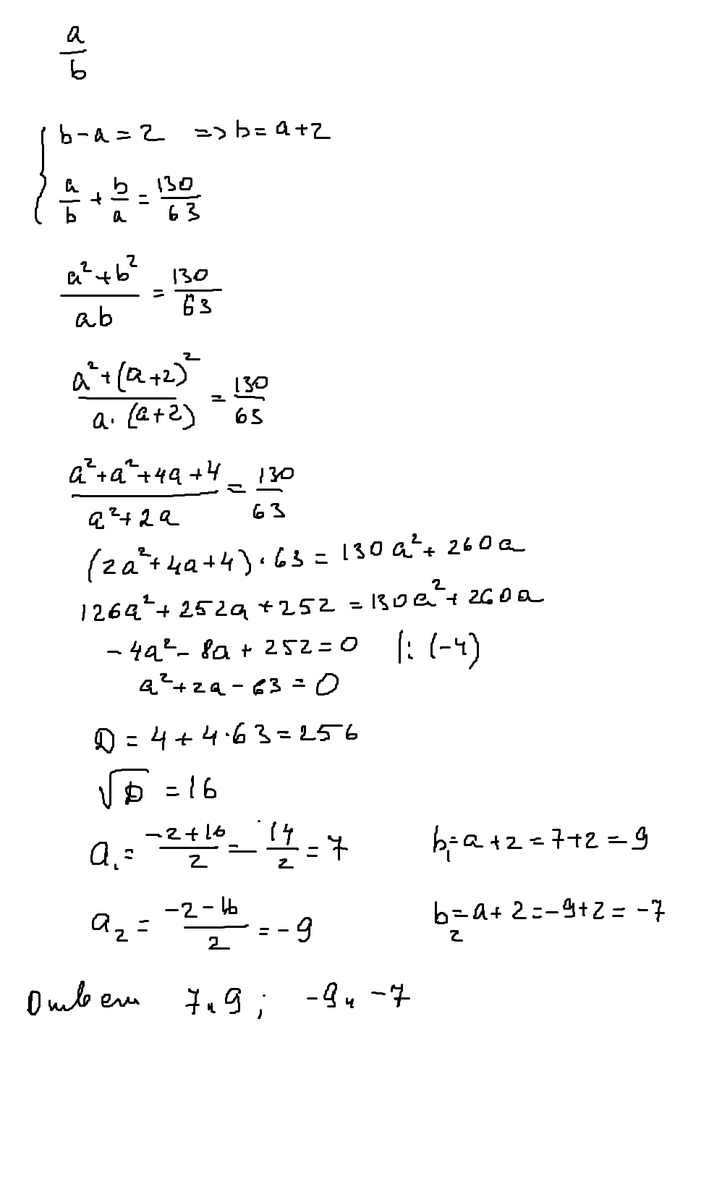 a/b
b-a=2 => b=a+2
a/b + b/a = 130/63
(a²+b²)/(ab) = 130/63
(a²+(a+2)²)/(a·(a+2)) = 130/63
(a²+a²+4a+4)/(a²+2a) = 130/63
(2a²+4a+4)·63 = 130a²+260a
126a²+252a+252 = 130a²+260a
-4a²-8a+252=0 |:(-4)
a²+2a-63=0
D = 4+4·63=256
√D = 16
a₁ = (-2+16)/2 = 14/2 = 7 b₁=a+2=7+2=9
a₂ = (-2-16)/2 = -9 b₂=a+2=-9+2=-7
Ответ 7 и 9; -9 и -7